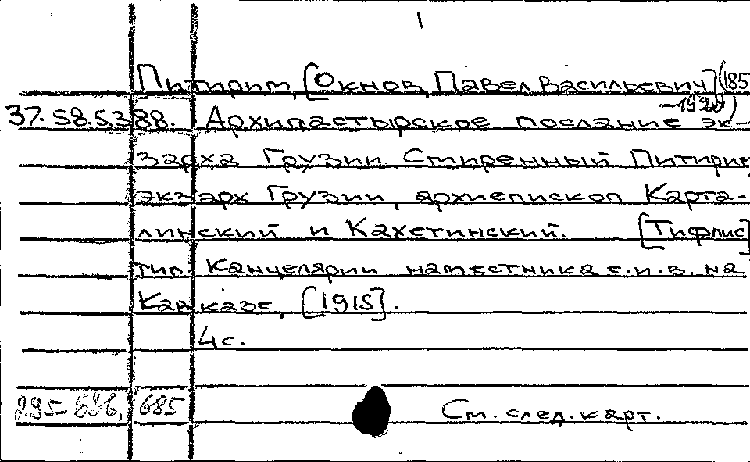 1
Питирим, [Окнов, Павел Васильевич] (185
-1920)
37.58.5.388. Архипастырское послание эк-
зарха Грузии. Смиренный Питирим,
экзарх Грузии, архиепископ Карта-
линский и Кахетинский. [Тифлис]
тип. Канцелярии наместника е.и.в. на
Кавказе, [1915].
4 с.
685
См. след. карт.